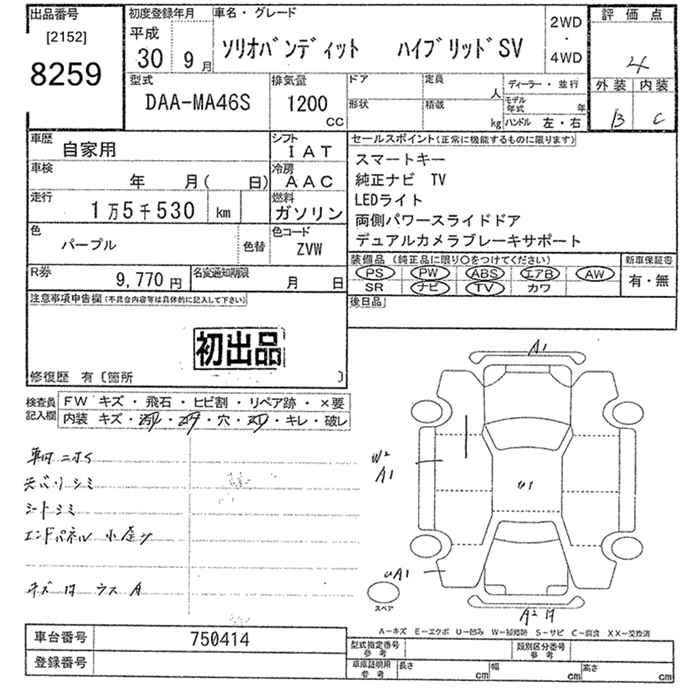 出品番号
[2152]
8259
初度登録年月
平成
30 9月
車名・グレード
ソリオバンディット ハイブリッドSV
2WD
・
4WD
評価点
4
外装 内装
B C
型式
DAA-MA46S
排気量
1200
CC
ドア
形状
定員
人
積載
kg
ディーラー・並行
モデル年式 年
ハンドル 左・右
車歴
自家用
シフト
IAT
車検
年 月( 日)
冷房
AAC
走行
1万5千530 km
燃料
ガソリン
色
パープル
色替
色コード
ZVW
R券
9,770円
名変通知期限
月 日
セールスポイント(正常に機能するものに限ります)
スマートキー
純正ナビ TV
LEDライト
両側パワースライドドア
デュアルカメラブレーキサポート
装備品(純正品に限り○をつけてください)
PS PW ABS エアB AW
SR ナビ TV カワ
新車保証書
有・無
後日品
注意事項申告欄(不具合内容等は具体的に記入して下さい)
初出品
修復歴 有〔箇所 〕
検査員記入欄
FW キズ・飛石・ヒビ割・リペア跡・×要
内装 キズ・・・穴・・キレ・破レ
車内ニオイ
天バリシミ
シートシミ
エンドパネル小歪ツ
キズ凹ウスA
A1
W2
A1
U1
UA1
A2凹
スペア
A-キズ E-エクボ U-凹み W-補修跡 S-サビ C-腐食 XX-交換済
車台番号 750414
登録番号
型式指定番号
参考
類別区分番号
参考
車庫証明用
参考
長さ cm 幅 cm 高さ cm